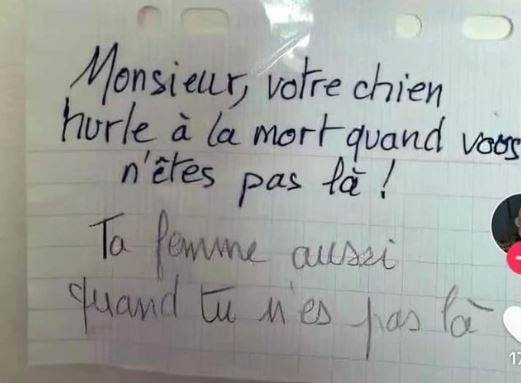 Monsieur, votre chien
hurle à la mort quand vous
n'êtes pas là !
Ta femme aussi
quand tu n'es pas là
17